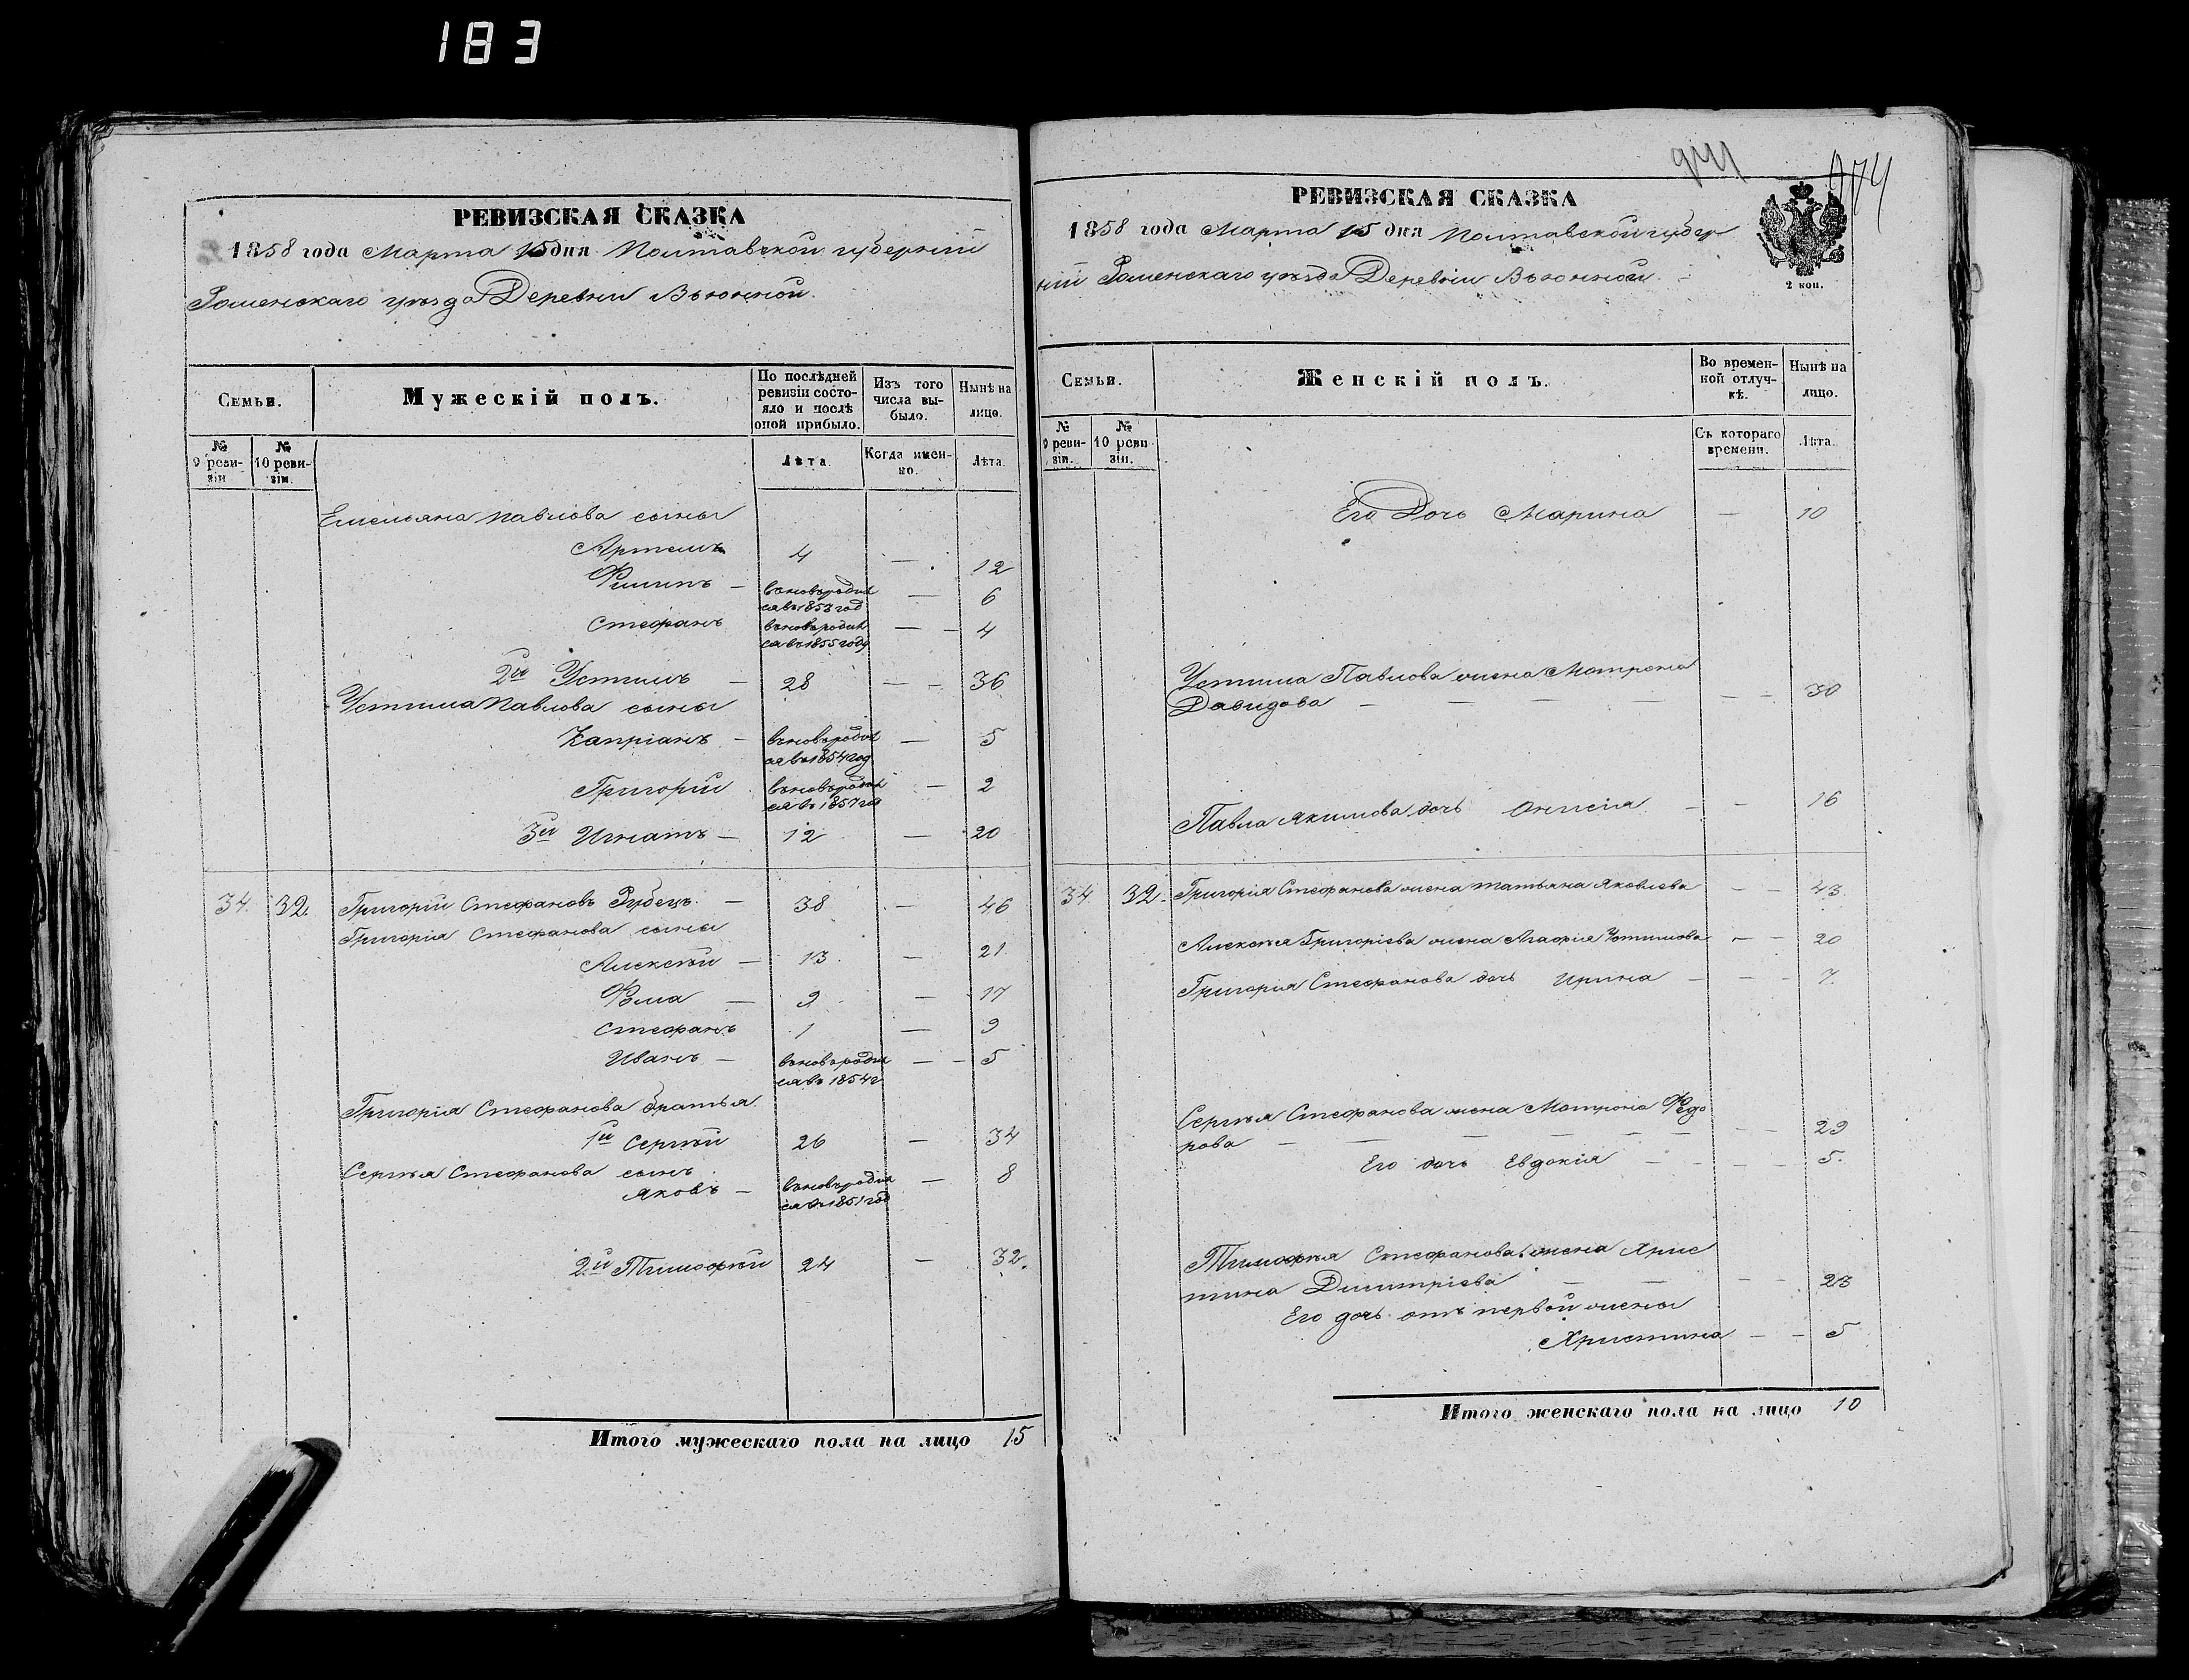 183
РЕВИЗСКАЯ СКАЗКА
1858 года Марта 15 дня Полтавской губерніи
Роменскаго уѣзда Деревни Вьюнной
Семьи.
Мужескій полъ.
По послѣдней ревизіи состояло и послѣ оной прибыло.
Изъ того числа выбыло.
Нынѣ на лицо.
№ 9 ревизіи
№ 10 ревизіи.
Лѣта.
Когда именно.
Лѣта
Емельяна Павлова сыны
Артемъ 4 — 12
Филипъ — вновьродилсявъ1853год — 6
Стефанъ вновьродилсявъ1855году — — 4
2й Устимъ — 28 — — 36
Устима Павлова сыны
Капріанъ — вновьродилсявъ1854год — 5
Григорій вновьродилсявъ1857го — 2
3й Игнатъ — 12 — 20
34. 32. Григорій Стефановъ Рубецъ — 38 — 46
Григорія Стефанова сыны
Алексѣй — 13 — 21
Фома — 9 — 17
Стефанъ 1 — 9
Иванъ — вновьродилсявъ 1854г — — 5
Григорія Стефанова братья
1й Сергѣй 26 — 34
Сергѣя Стефанова сынъ
Яковъ — вновьродилсявъ1851год — 8
2й Тимофѣй 24 — 32.
Итого мужескаго пола на лицо 15
974
РЕВИЗСКАЯ СКАЗКА
1858 года Марта 15 дня Полтавской губер
ніи Роменскаго уѣзда Деревни Вьюнной
2 коп.
Семьи.
Женскій полъ.
Во временной отлучкѣ.
Нынѣ на лицо.
№ 9 ревизіи.
№ 10 ревизіи.
Съ котораго времени.
Лѣта.
Его Дочь Марина — 10
Устима Павлова жена Мотрона
Давидова — — — — — — 30
Павла Якимова дочь Онисія — — 16
34 32. Григорія Стефанова жена Татьяна Яковлева — — 43.
Алексѣя Григоріева жена Агафія Устимова — — 20
Григорія Стефанова дочь Ирина — — — 7.
Сергѣя Стефанова жена Мотрона Федо
рова — — — — — — — — 29
Его дочь Евдокія — — — — 5.
Тимофѣя Стефанова жена Хрис
тина Димитріева — — — — 23
Его дочь отъ первой жены
Христина — — 5
Итого женскаго пола на лицо 10